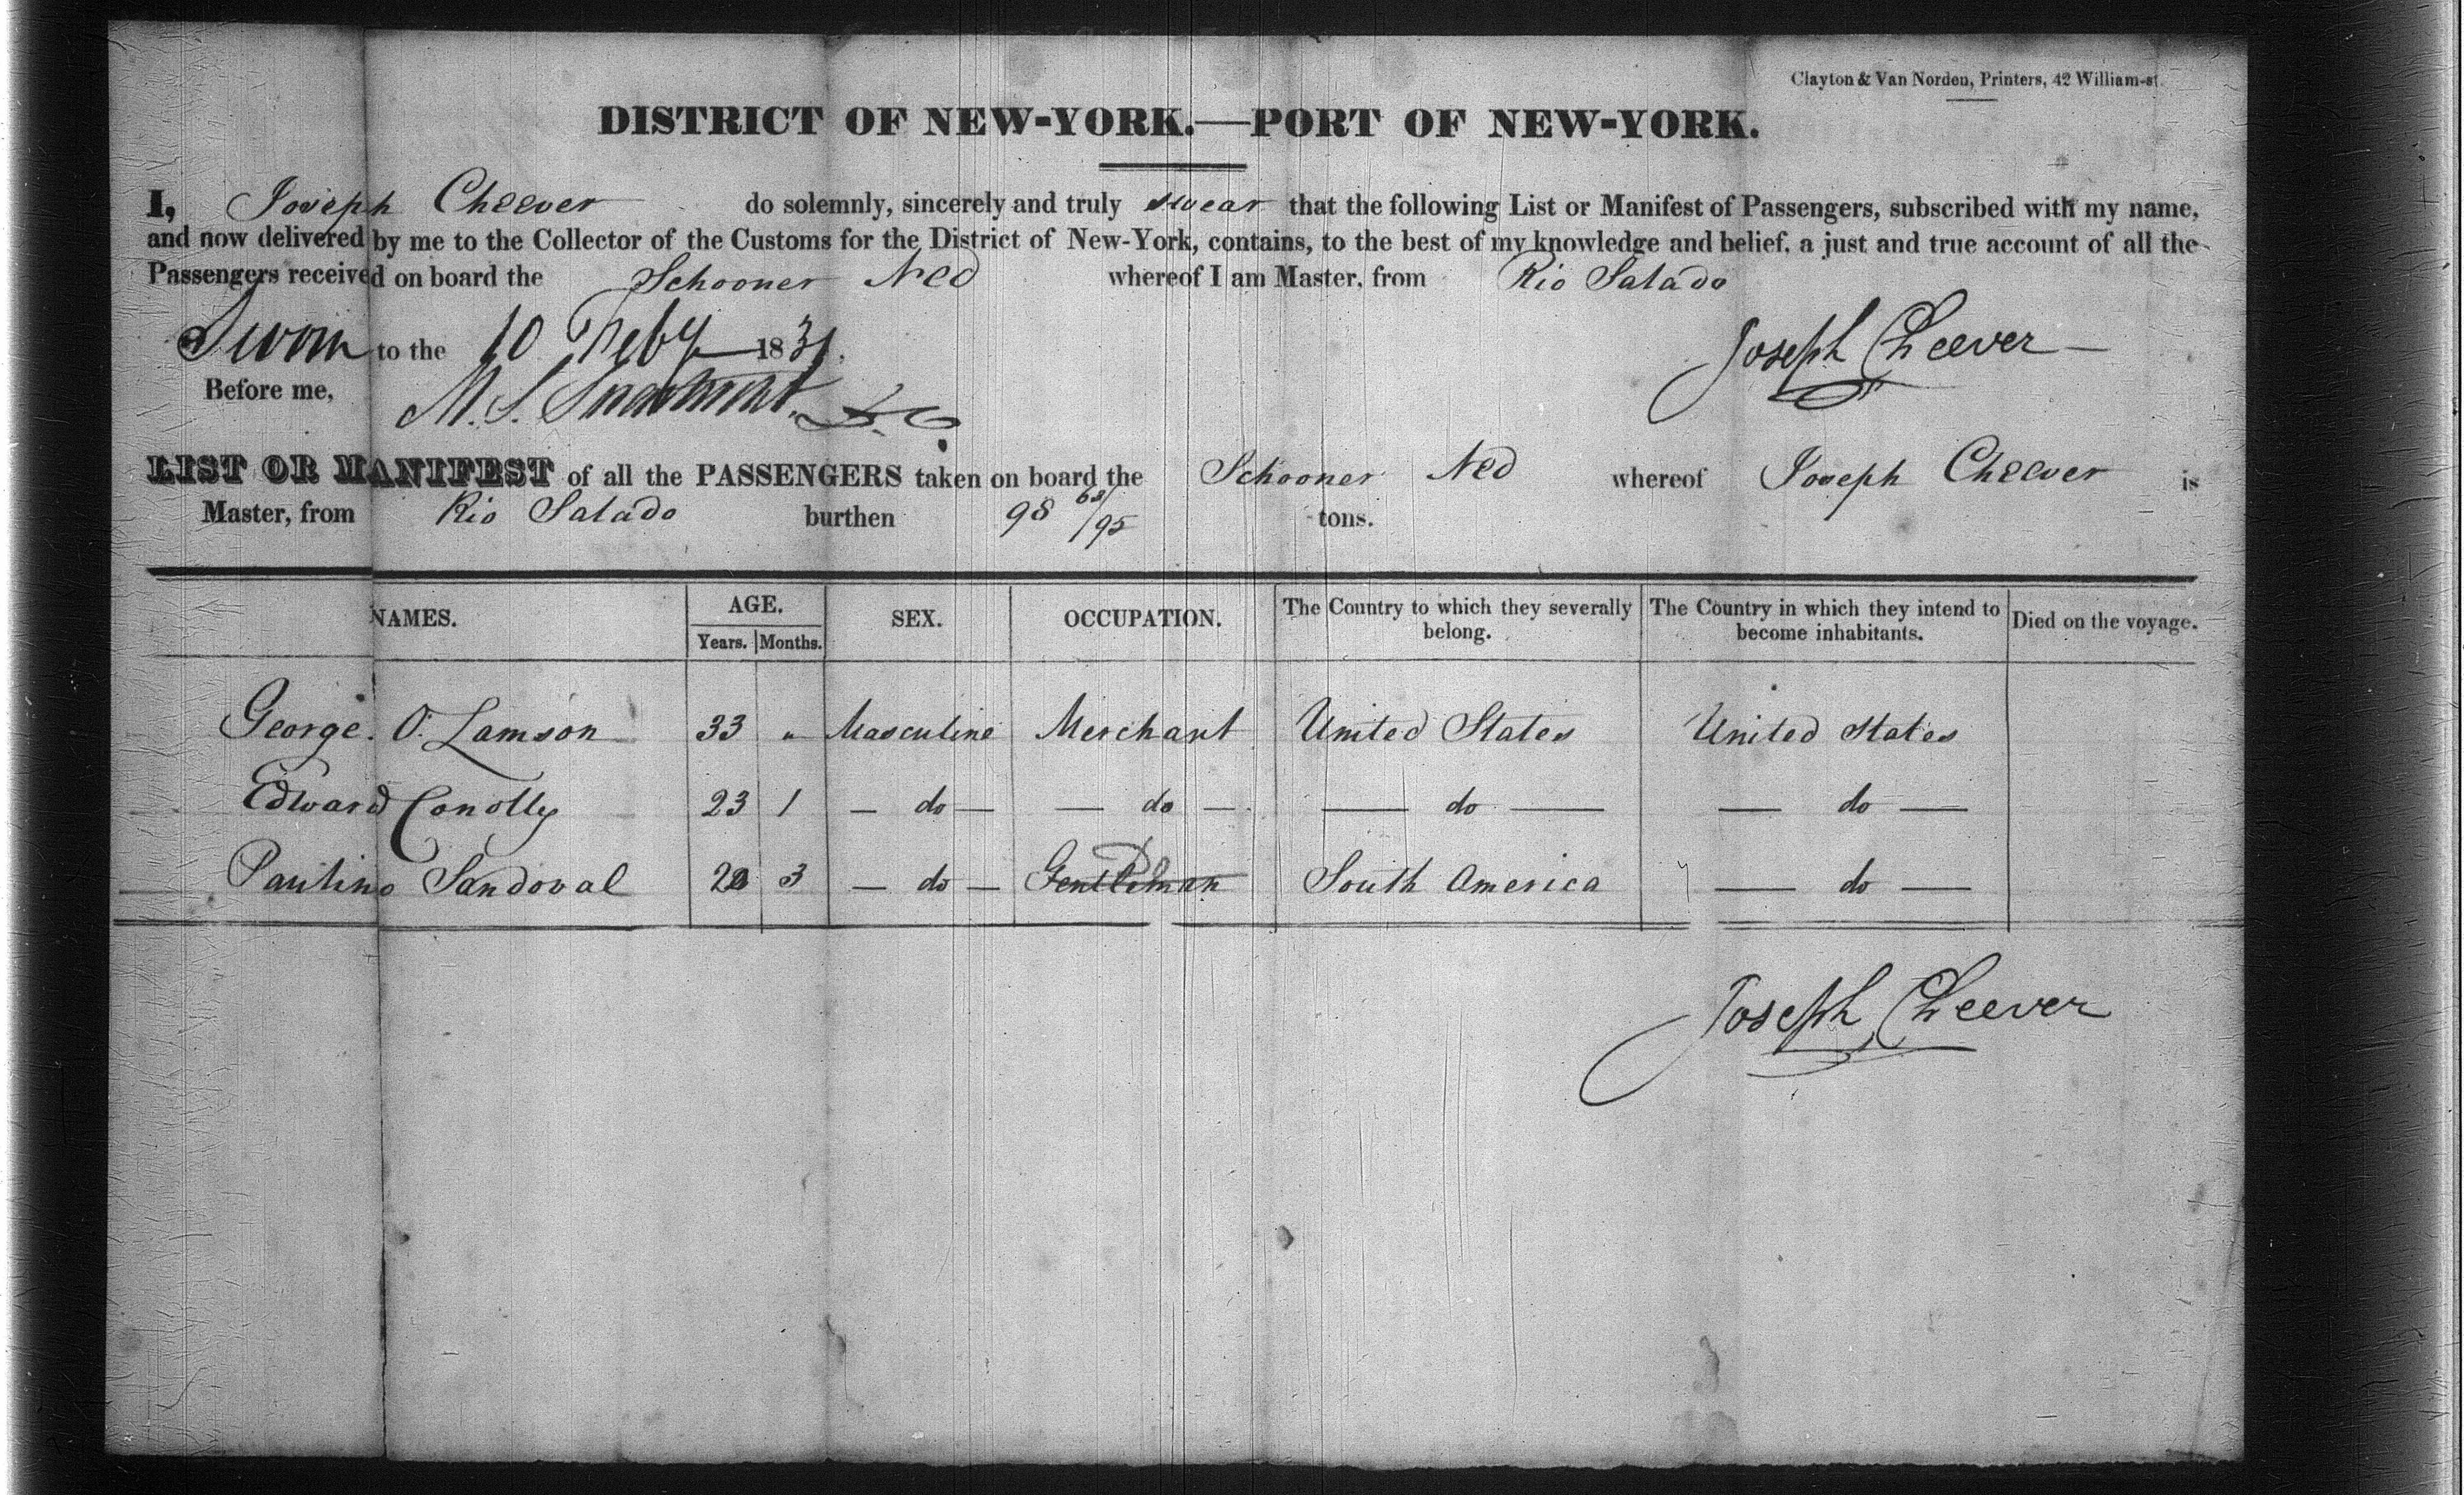 Clayton & Van Norden, Printers, 42 William-st.
DISTRICT OF NEW-YORK.—PORT OF NEW-YORK.
I, Joseph Cheever do solemnly, sincerely and truly swear that the following List or Manifest of Passengers, subscribed with my name,
and now delivered by me to the Collector of the Customs for the District of New-York, contains, to the best of my knowledge and belief, a just and true account of all the
Passengers received on board the Schooner Ned whereof I am Master, from Rio Salado
Sworn to the 10 Feby 1831. Joseph Cheever
Before me, M. S.
LIST OR MANIFEST of all the PASSENGERS taken on board the Schooner Ned whereof Joseph Cheever is
Master, from Rio Salado burthen 98 68/95 tons.
NAMES. AGE. Years. Months. SEX. OCCUPATION. The Country to which they severally belong. The Country in which they intend to become inhabitants. Died on the voyage.
George. O. Lamson 33 " Masculine Merchant United States United States
Edward Conolly 23 1 — do — — do — — do — — do —
Paulino Sandoval 3 — do — Gentleman South America — do —
Joseph Cheever